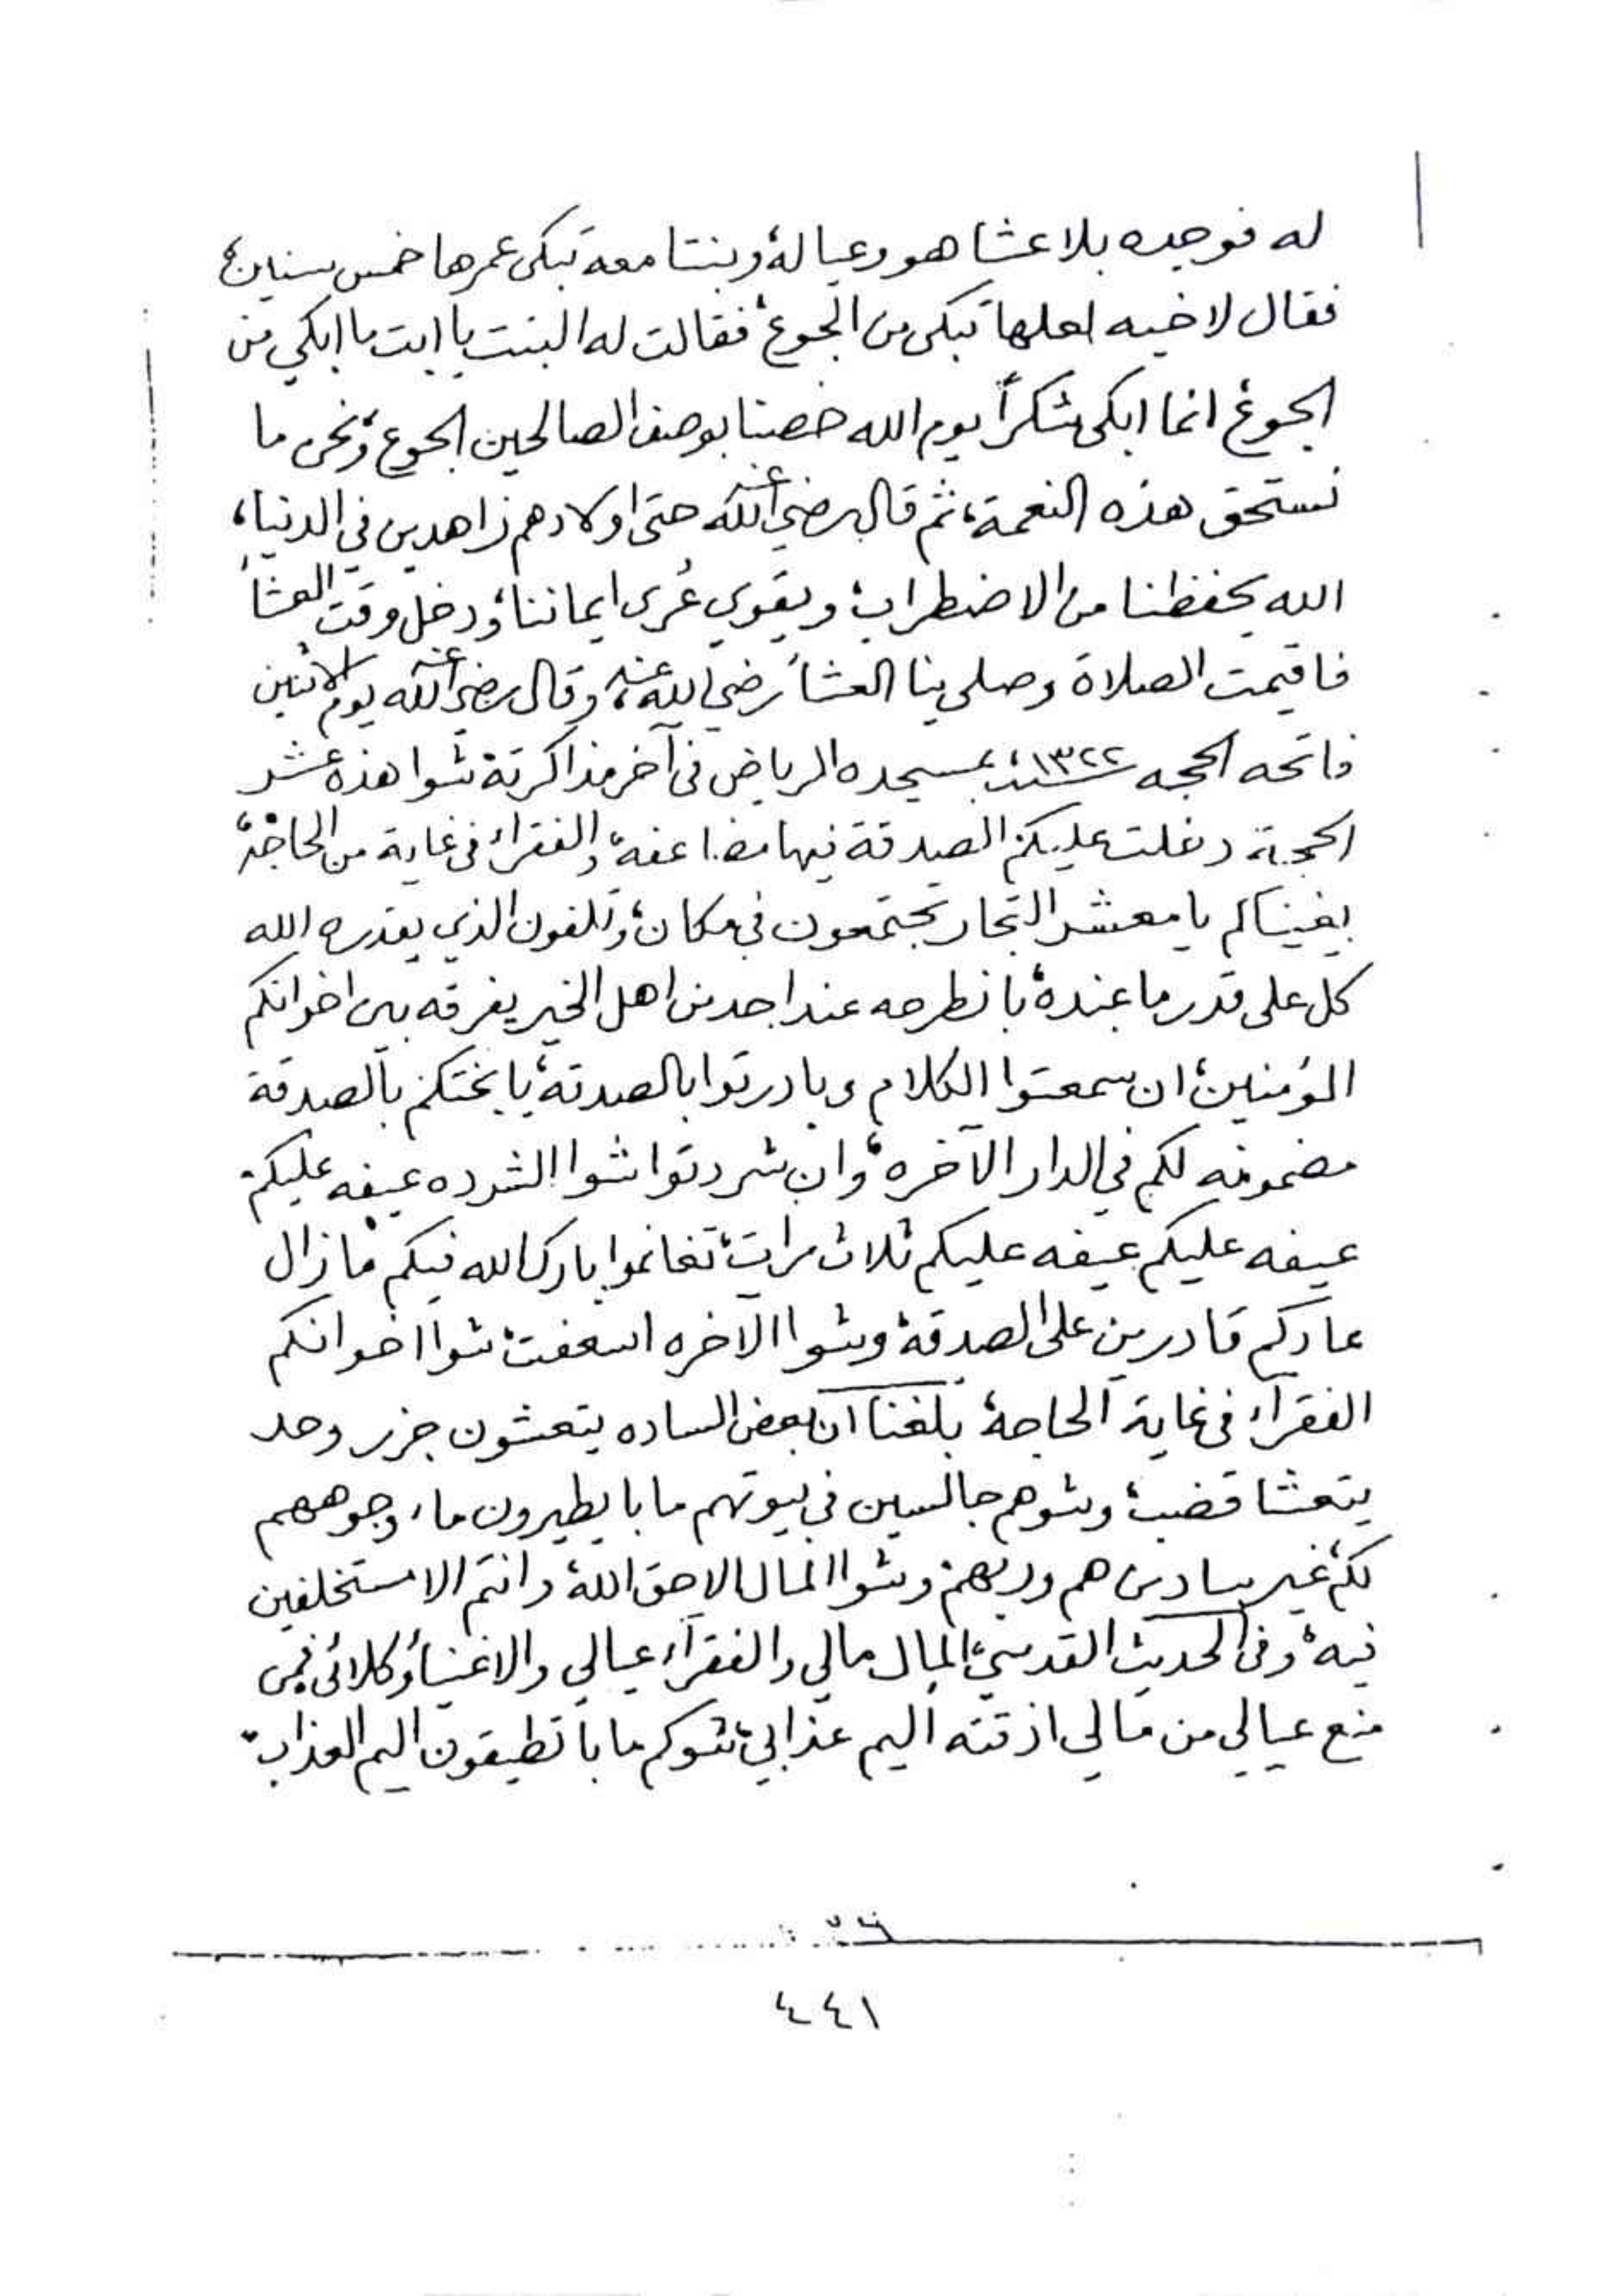 له فوجده بلا عشا هو وعياله، وبنتا معه تبكى عمرها خمس سنين،
فقال لاخيه لعلها تبكى من الجوع، فقالت له البنت يا ابت ما ابكي من
الجوع، انما ابكى شكراً يوم الله خصنا بوصف الصالحين الجوع، ونحن ما
نستحق هذه النعمة، ثم قال رضي الله عنه حتى اولادهم زاهدين في الدنيا،
الله يحفظنا من الاضطراب، ويقوي عُرى ايماننا، ودخل وقت العشاء
فاقيمت الصلاة وصلى بنا العشاء رضي الله عنه، وقال رضي الله عنه يوم الاثنين
فاتحه الحجه سنة ١٣٢٢ بمسجده الرياض فى آخر مذاكرته شوا هذه عشر
الحجة دخلت عليكم الصدقة فيها مضاعفه، والفقراء فى غاية من الحاجة،
بغيناكم يا معشر التجار تجتمعون في مكان، وتلفون الذي يقدره الله
كل على قدر ما عنده، با نطرحه عند احد من اهل الخير يفرقه بين اخوانكم
المؤمنين، ان سمعتوا الكلام وبادرتوا بالصدقة، يا بختكم بالصدقة
مضمونه لكم في الدار الآخره، وان شردتوا شوا الشرده عيفه عليكم
عيفه عليكم عيفه عليكم ثلاث مرات، تغانموا بارك الله فيكم مازال
عادكم قادرين على الصدقة، وشوا الآخره اسعفت، شوا اخوانكم
الفقراء فى غاية الحاجة، بلغنا ان بعض الساده يتعشون جزر وحد
يتعشا قضب، وشوهم جالسين في بيوتهم ما با يطيرون ماء وجوههم
لكم، غير سادين هم وربهم، وشوا المال الا حق الله، وانتم الا مستخلفين
فيه، وفى الحديث القدسي، المال مالي والفقراء عيالي والاغنياء وكلائى فمن
منع عيالي من مالي اذقته اليم عذابي، شوكم ما با تطيقون اليم العذاب،
٤٤١